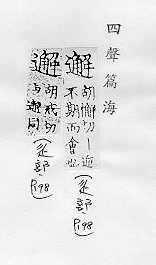 四聲篇海
邂
胡懈切丨逅
不期而會也
(辵部
P198)
胡戒切
与邂同
(辵部
P198)